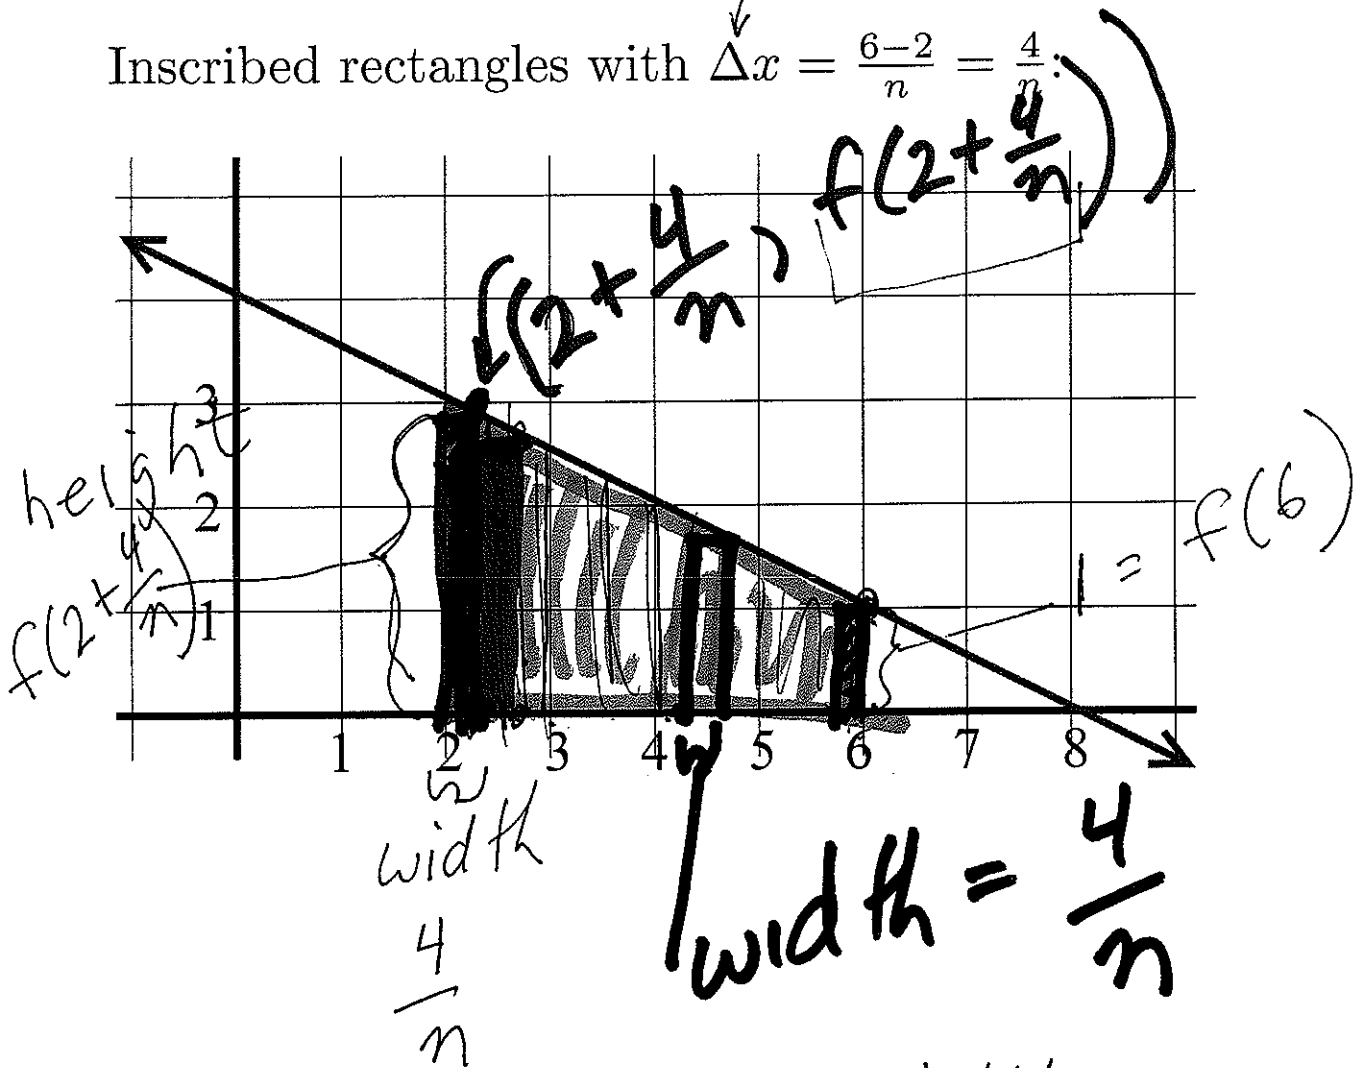 Inscribed rectangles with Δx = \frac{6-2}{n} = \frac{4}{n}:
(2 + \frac{4}{n}, f(2 + \frac{4}{n}))
3
height
2
f(2 + \frac{4}{n})
1
1 = f(6)
1 2 3 4 5 6 7 8
width
\frac{4}{n}
width = \frac{4}{n}